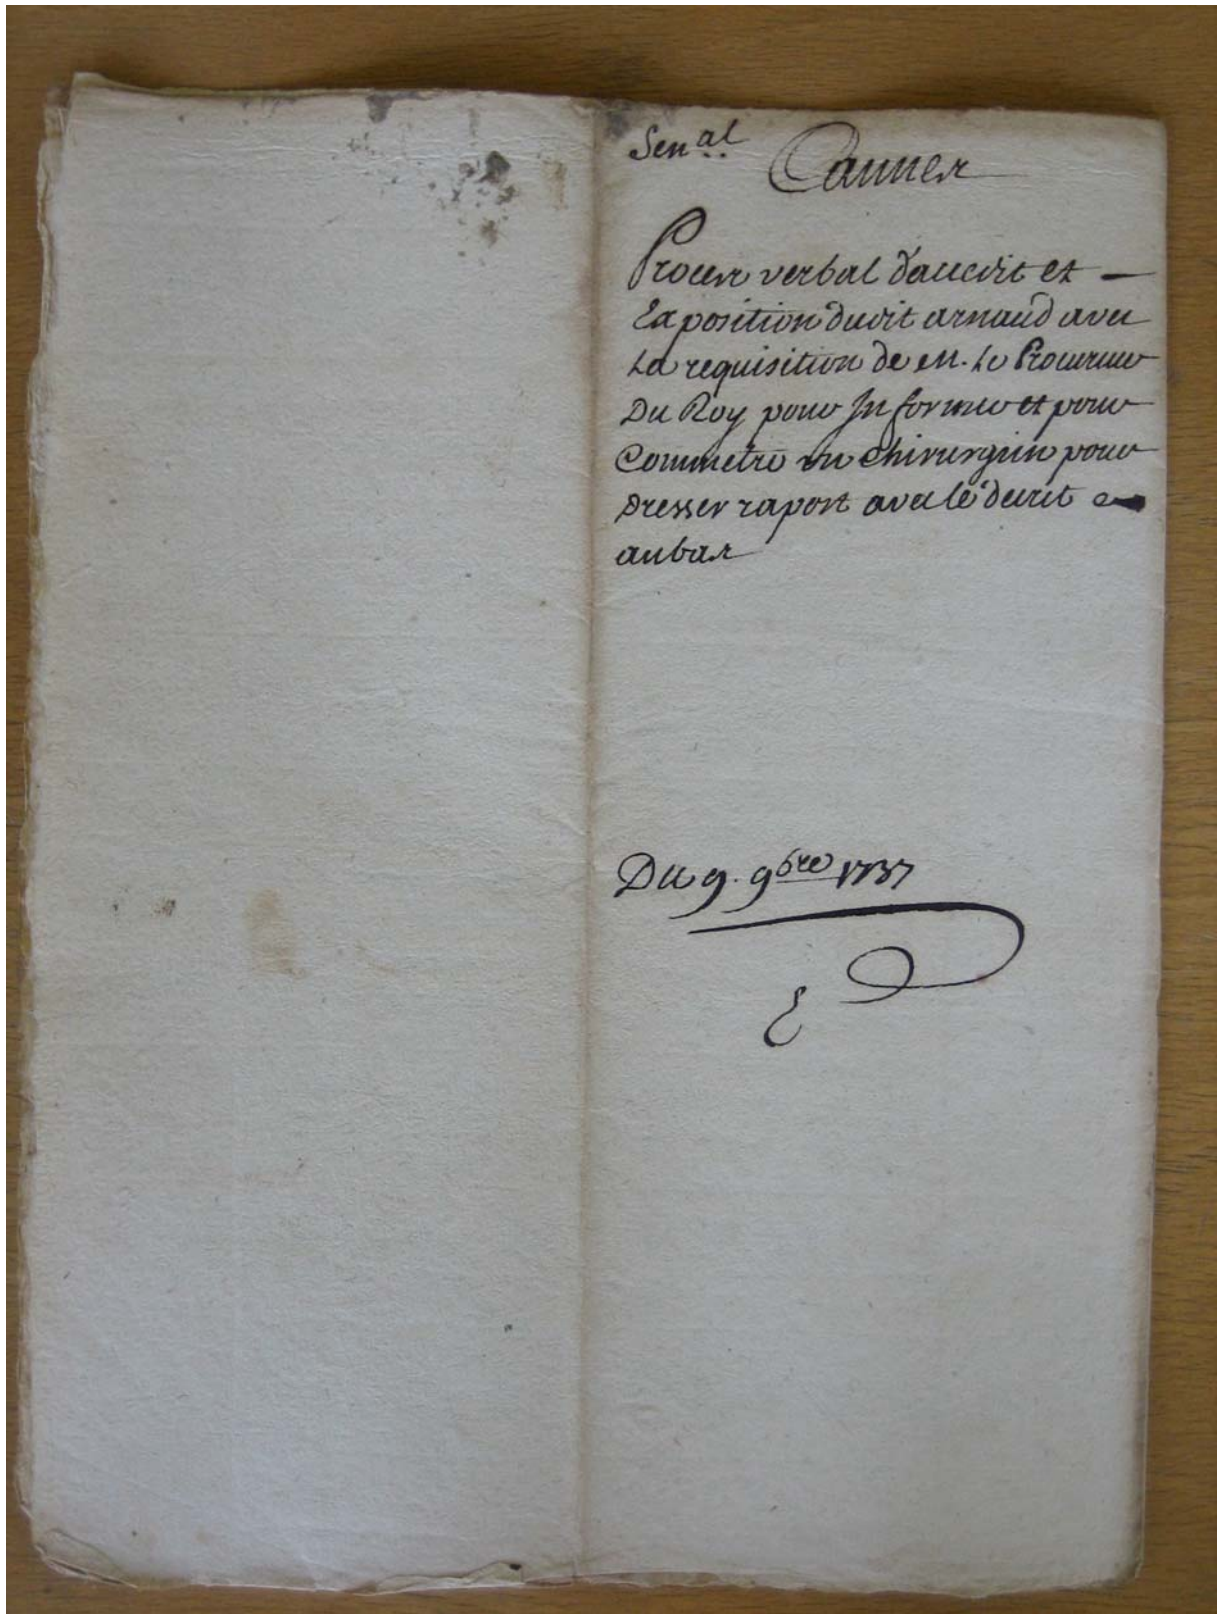 Sen.al
Cannes
Proces verbal d'accedit et
Exposition dudit arnaud avec
La requisition de M. le Procureur
Du Roy pour Informer et pour
Commetre un Chirurgien pour
Dresser raport avec le decret
au bas
Du 9. 9bre 1737